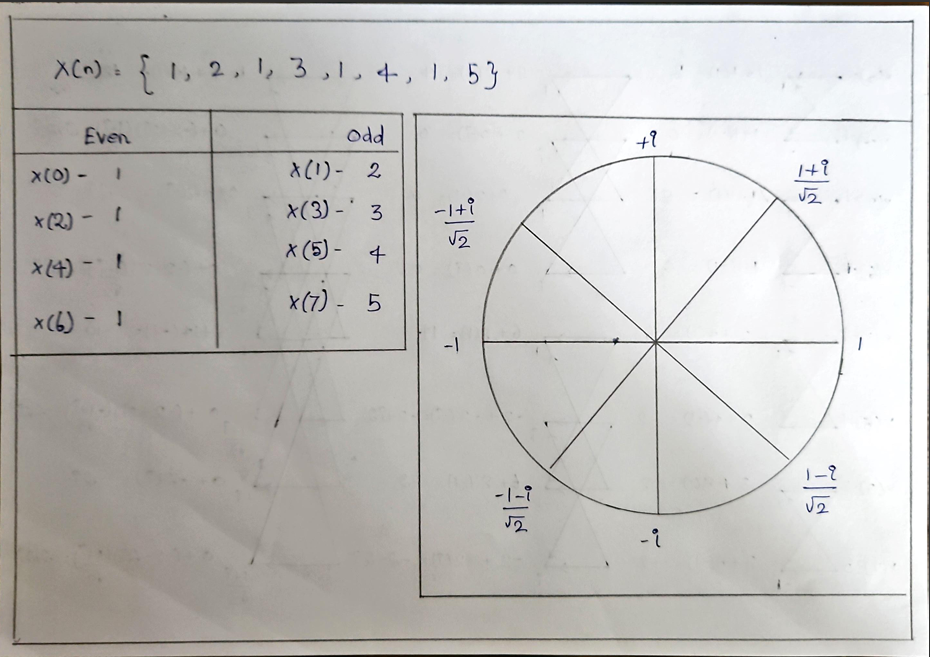 x(n) = { 1, 2, 1, 3, 1, 4, 1, 5}
Even Odd
x(0) - 1 x(1) - 2
x(2) - 1 x(3) - 3
x(4) - 1 x(5) - 4
x(6) - 1 x(7) - 5
+i
1+i/√2
-1+i/√2
-1
1
-1-i/√2
1-i/√2
-i